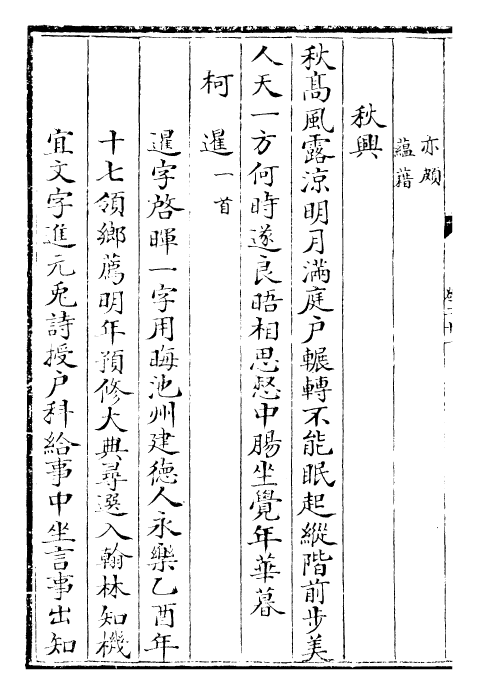 亦頗
蘊藉
秋興
秋髙風露涼明月滿庭户輾轉不能眠起縱階前步美
人天一方何時遂良晤相思愁中腸坐覺年華暮
柯暹一首
暹字啓暉一字用晦池州建德人永樂乙酉年
十七領鄉薦明年預修大典尋選入翰林知機
宜文字進元兎詩授户科給事中坐言事出知